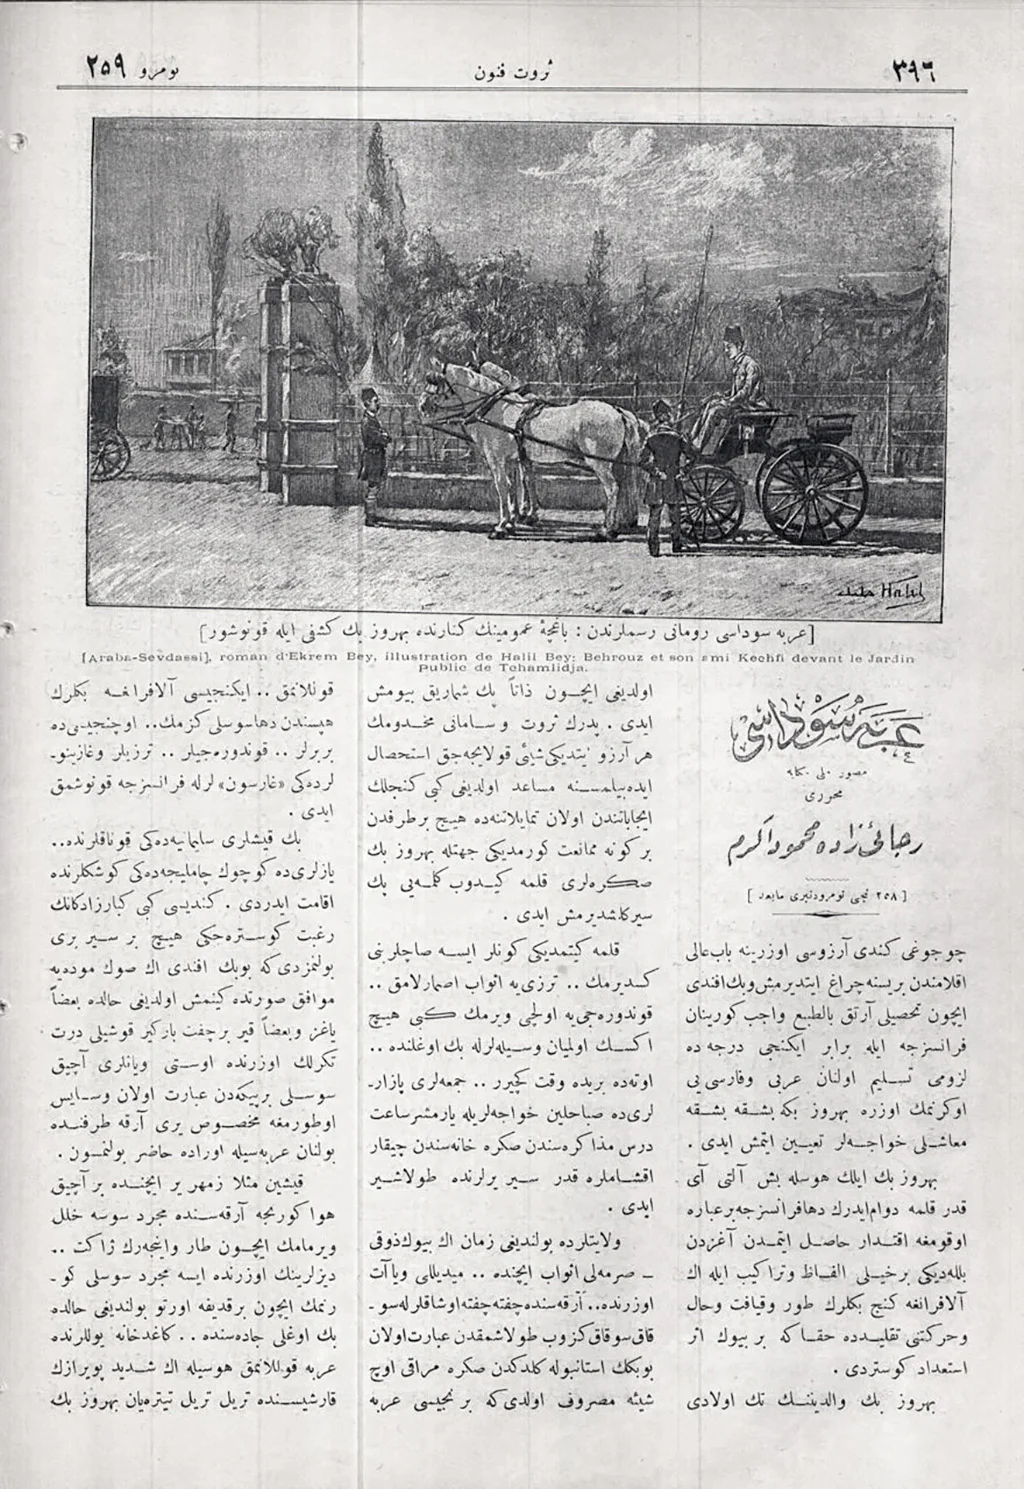 ٣٩٦
ثروت فنون
نومرو ٢٥٩
Halil خلیل
[عربه سوداسی رومانی رسملرندن : باغچۀ عمومینك کنارنده بهروز بك کشفی ایله قونوشور]
[Araba-Sevdassi], roman d'Ekrem Bey, illustration de Halil Bey: Behrouz et son ami Kechfi devant le Jardin
public de Tchamlidja.
عربه سوداسی
مصور ملی حکایه
محرری
رجائی زاده محمود اکرم
[ ٢٥٨ نجی نومرودنبری مابعد ]
چوجوغی کندی آرزوسی اوزرینه باب عالی
اقلامندن بریسنه چراغ ایتدیرمش وبك افندی
ایچون تحصیلی آرتق بالطبع واجب کورینان
فرانسزجه ایله برابر ایکنجی درجه ده
لزومی تسلیم اولنان عربی وفارسی یی
اوکرنمك اوزره بهروز بکه بشقه بشقه
معاشلی خواجه لر تعیین ایتمش ایدی .
بهروز بك ایلك هوسله بش آلتی آی
قدر قلمه دوام ایدرك دها فرانسزجه بر عباره
اوقومغه اقتدار حاصل ایتمدن آغزدن
بللەدیکی برخیلی الفاظ وتراکیب ایله اك
آلافرانغه کنج بکلرك طور وقیافت وحال
وحرکتنی تقلیدده حقا که بر بیوك اثر
استعداد کوستردی .
بهروز بك والدیننك تك اولادی
اولدیغی ایچون ذاتاً پك شمارق بیومش
ایدی . پدرك ثروت و سامانی مخدومك
هر آرزو ایتدیکی شیئی قولایجه جق استحصال
ایده بیلمسنه مساعد اولدیغی کبی کنجلك
ایجاباتندن اولان تمایلاتنده هیچ برطرفدن
بر کونه ممانعت کورمدیکی جهتله بهروز بك
صکره لری قلمه کیدوب کلمه یی پك
سیرکلشدیرمش ایدی .
قلمه کیتمدیکی کونلر ایسه صاچلرینی
کسدیرمك .. ترزی یه اثواب اصمارلامق ..
قوندوره جی یه اولچی ویرمك کبی هیچ
اکسك اولمیان وسیله لرله بك اوغلنده ..
اوتەده بریده وقت کچیرر .. جمعه لری پازار-
لری ده صباحلین خواجه لریله یارمشر ساعت
درس مذاکره سندن صکره خانه سندن چیقار
اقشاملره قدر سیر یرلرنده طولاشیر
ایدی .
ولایتلرده بولندیغی زمان اك بیوك ذوقی
ـ صرمه لی اثواب ایچنده .. میدیللی ویا آت
اوزرنده.. آرقه سنده چفته چفته اوشاقلرله سو ـ
قاق سوقاق کزوب طولاشمقدن عبارت اولان
بوبكك استانبوله کلدکدن صکره مراقی اوچ
شیئه مصروف اولدی که برنجیسی عربه
قوللانمق .. ایکنجیسی آلافرانغه بکلرك
هپسندن دها سوسلی کزمك.. اوچنجیسی ده
بربرلر .. قوندوره جیلر .. ترزیلر وغازینو-
لرده کی «غارسون» لرله فرانسزجه قونوشمق
ایدی .
بك قیشلری سلیمانیه ده کی قوناقلرنده..
یازلری ده کوچوك چاملیجه ده کی کوشکلرنده
اقامت ایدردی . کندیسی کبی کبارزادکانك
رغبت کوستره جکی هیچ بر سیر یری
بولنمزدی که بوبك افندی اك صوك موده یه
موافق صورتده کینمش اولدیغی حالده بعضاً
یاغز وبعضاً قیر برچفت بارکیر قوشیلی درت
تکرلك اوزرنده اوستی ویانلری آچیق
سوسلی بر پیكەدن عبارت اولان وسایس
اوطورمغه مخصوص یری آرقه طرفنده
بولنان عربه سیله اوراده حاضر بولنمسون .
قیشین مثلا زمهریر ایچنده بر آچیق
هوا کورنجه آرقه سنده مجرد سوسه خلل
ویرمامك ایچون طار واینجه رك ژاکت ..
دیزلرینك اوزرنده ایسه مجرد سوسلی کو ـ
رنمك ایچون برقدیفه اورتو بولندیغی حالده
بك اوغلی جاده سنده .. کاغدخانه یوللرنده
عربه قوللانمق هوسیله اك شدید پویرازك
قارشیسنده تریل تریل تیتره یان بهروز بك